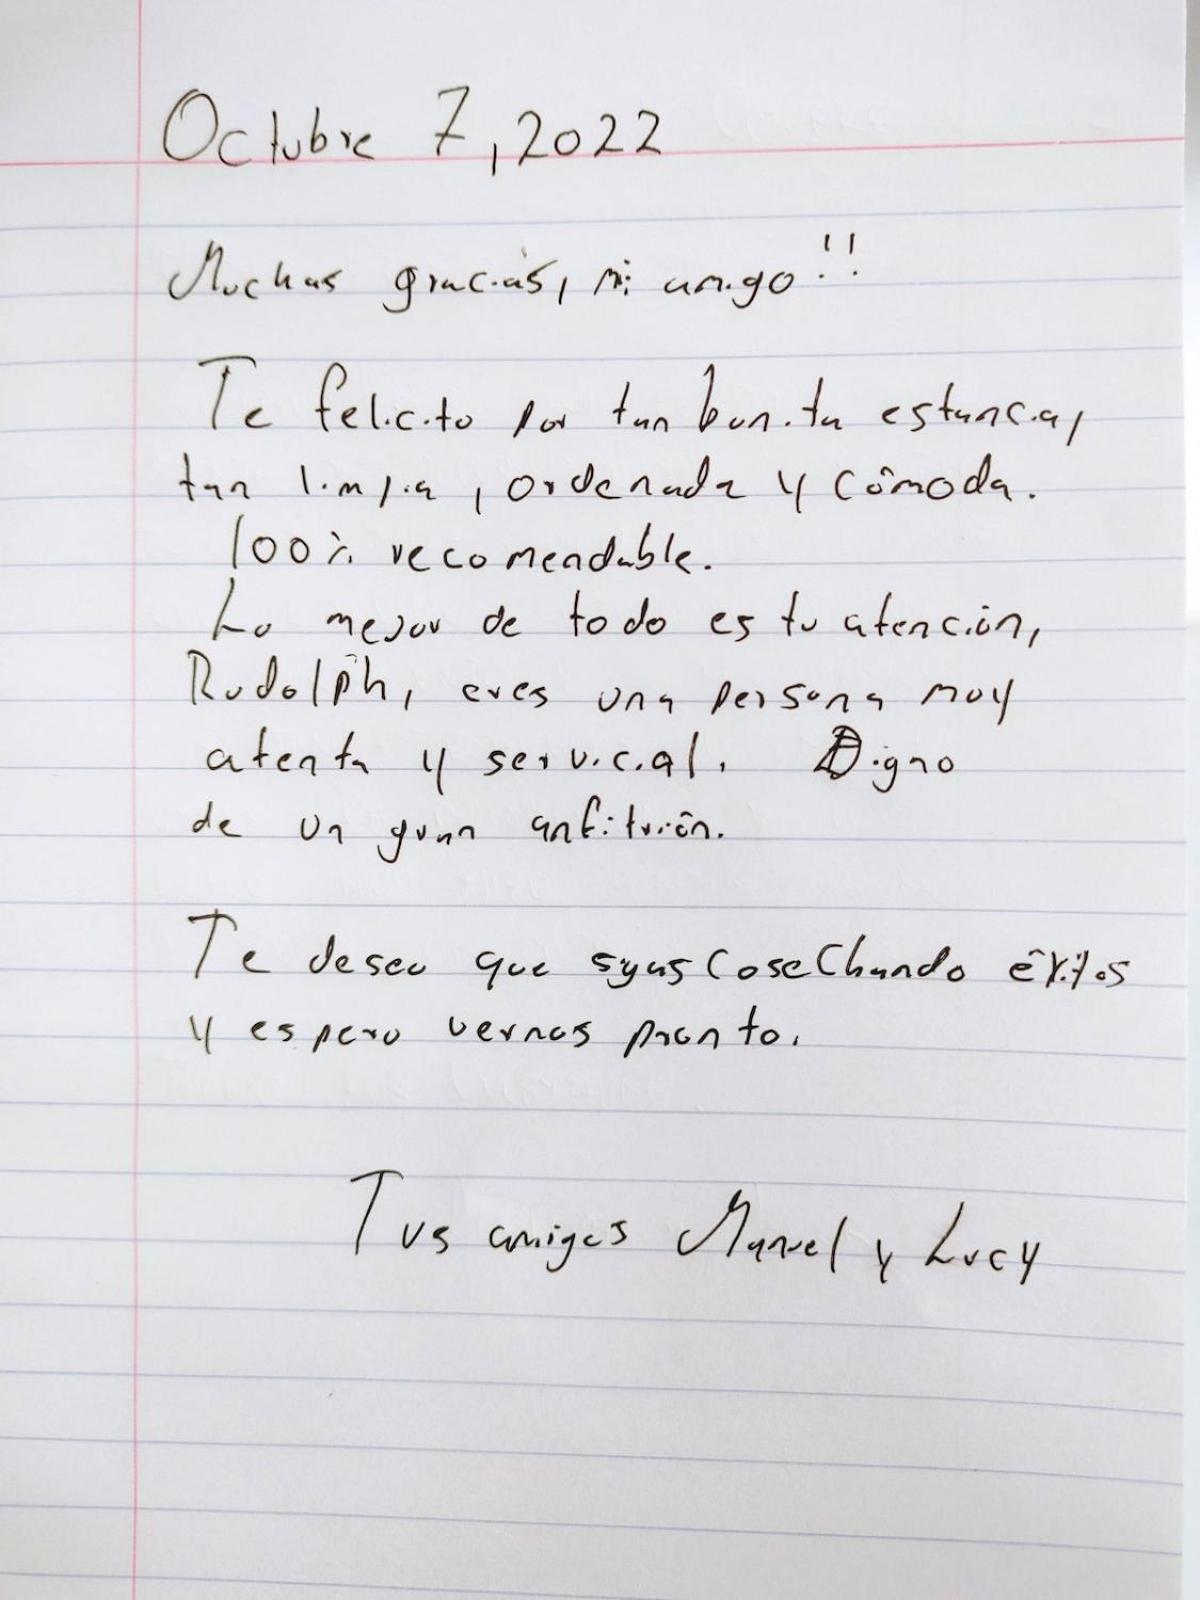 Octubre 7, 2022
Muchas gracias, mi amigo!!
Te felicito por tan bonita estancia,
tan limpia, ordenada y cómoda.
100% recomendable.
Lo mejor de todo es tu atención,
Rudolph, eres una persona muy
atenta y servicial. Digno
de un gran anfitrión.
Te deseo que sygas cosechando éxitos
y espero vernos pronto.
Tus amigos Manuel y Lucy